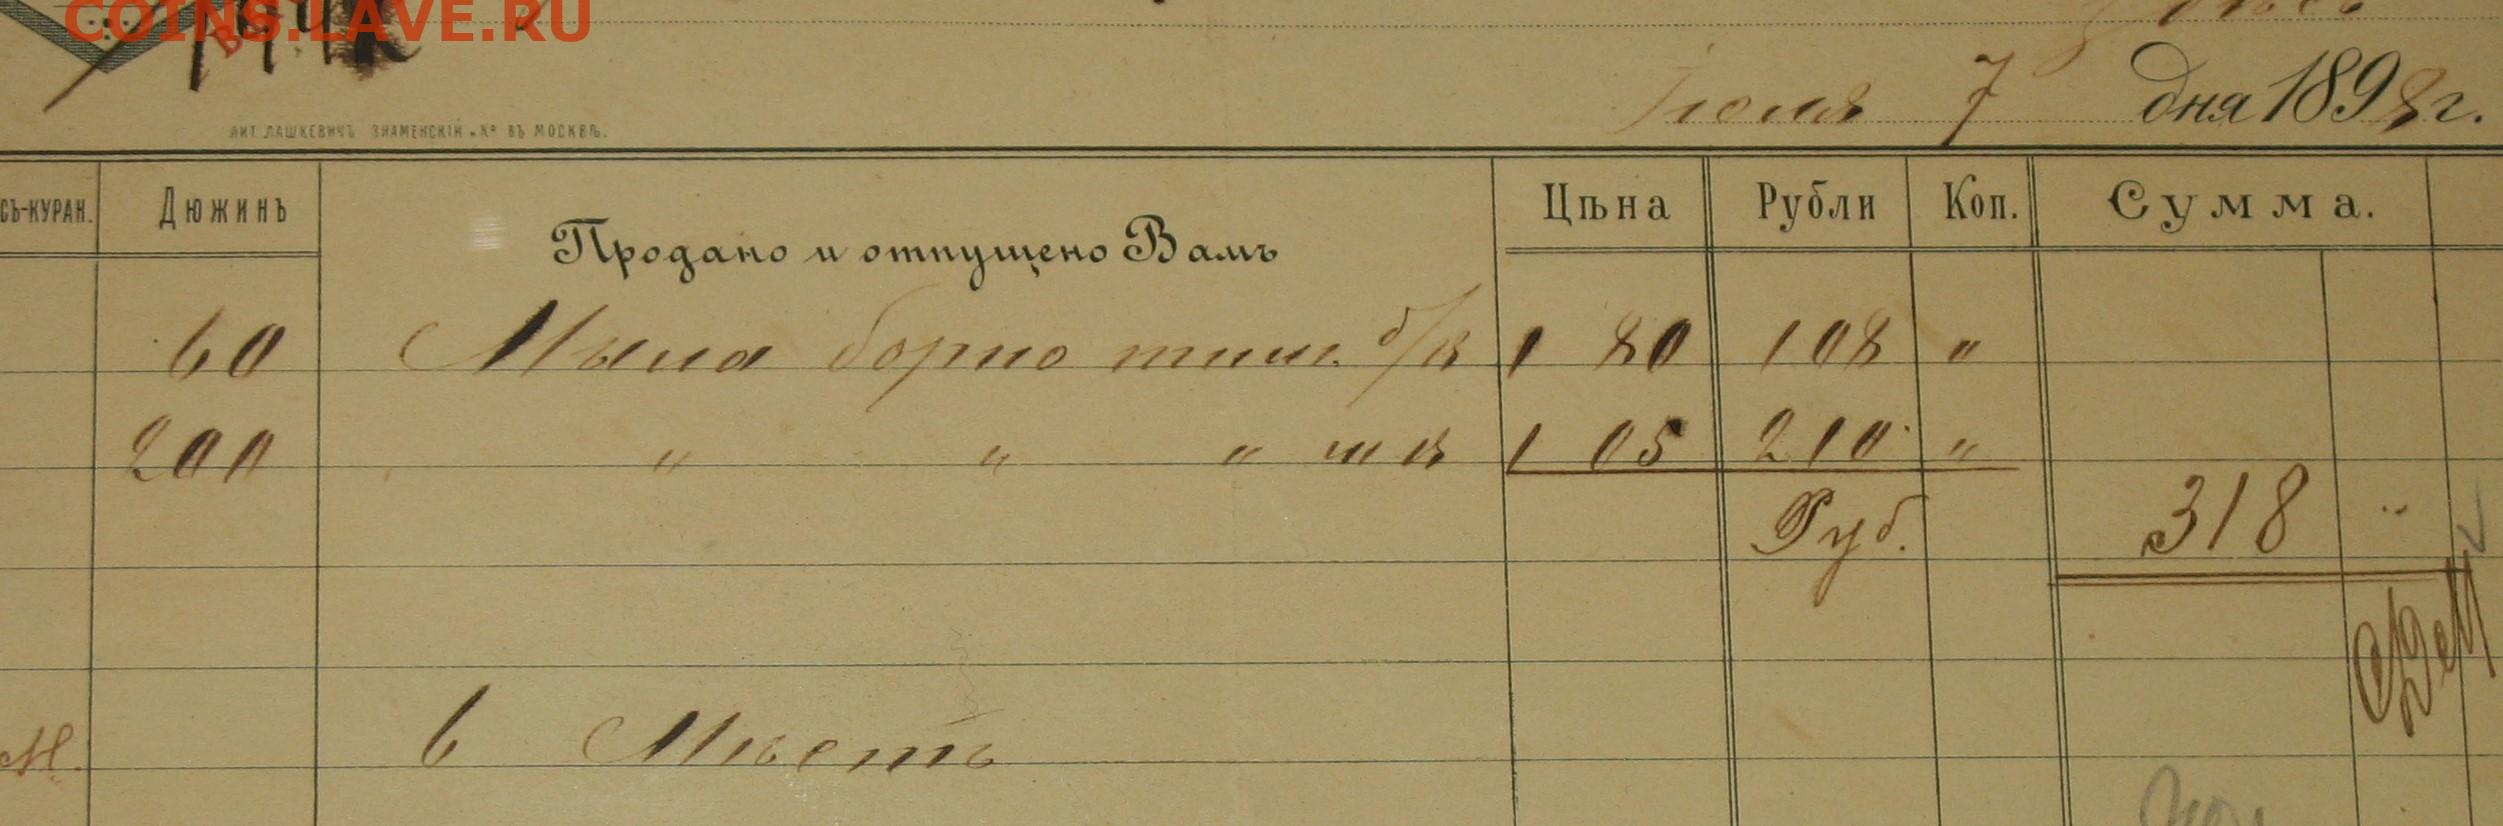 COINS.LAVE.RU
Іюля 7 дня 1898 г.
ЛИТ. ЛАШКЕВИЧЪ ЗНАМЕНСКІЙ и Ко ВЪ МОСКВѢ.
СЪ-КУРАН. Дюжинъ Продано и отпущено Вамъ Цѣна Рубли Коп. Сумма.
60 Мыла борно тим. б/к 1 80 108 "
200 " " " м к 1 05 210 "
Руб. 318 "
6 Мѣстъ